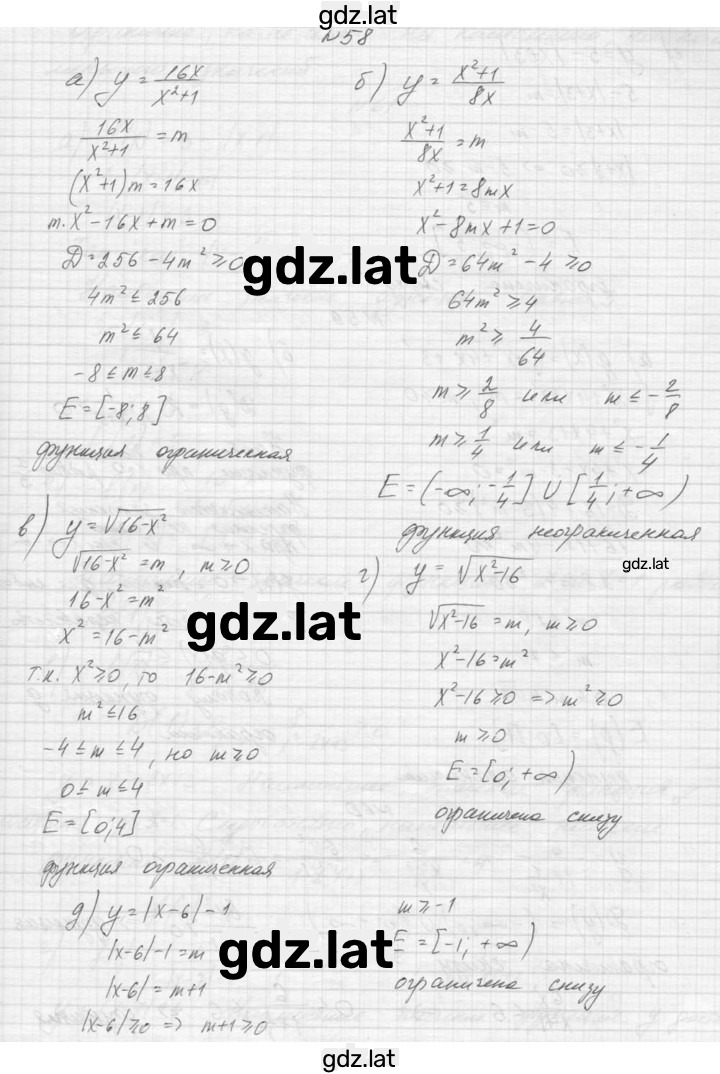 gdz.lat
№58
а) y = 16x/(x²+1)
16x/(x²+1) = m
(x²+1)m = 16x
m·x² - 16x + m = 0
D = 256 - 4m² ⩾ 0
4m² ⩽ 256
m² ⩽ 64
-8 ⩽ m ⩽ 8
E = [-8; 8]
функция ограниченная
б) y = (x²+1)/8x
(x²+1)/8x = m
x²+1 = 8mx
x² - 8mx + 1 = 0
D = 64m² - 4 ⩾ 0
64m² ⩾ 4
m² ⩾ 4/64
m ⩾ 2/8 или m ⩽ -2/8
m ⩾ 1/4 или m ⩽ -1/4
E = (-∞; -1/4] ∪ [1/4; +∞)
функция неограниченная
gdz.lat
в) y = √(16-x²)
√(16-x²) = m, m ⩾ 0
16-x² = m²
x² = 16-m²
т.к. x² ⩾ 0, то 16-m² ⩾ 0
m² ⩽ 16
-4 ⩽ m ⩽ 4, но m ⩾ 0
0 ⩽ m ⩽ 4
E = [0; 4]
функция ограниченная
gdz.lat
gdz.lat
г) y = √(x²-16)
√(x²-16) = m, m ⩾ 0
x²-16 = m²
x²-16 ⩾ 0 => m² ⩾ 0
m ⩾ 0
E = [0; +∞)
ограничена снизу
д) y = |x-6| - 1
|x-6| - 1 = m
|x-6| = m+1
|x-6| ⩾ 0 => m+1 ⩾ 0
gdz.lat
m ⩾ -1
E = [-1; +∞)
ограничена снизу
gdz.lat